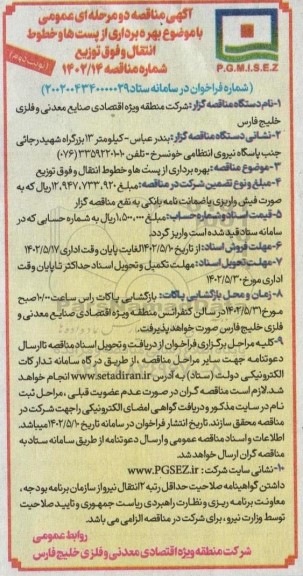 آگهی مناقصه دو مرحله ای عمومی
با موضوع بهره برداری از پست ها و خطوط
انتقال و فوق توزیع
شماره مناقصه ۱۴۰۲/۱۴
(نوبت دوم)
P.G.M.I.S.E.Z
(شماره فراخوان در سامانه ستاد ۲۰۰۲۰۰۴۳۴۰۰۰۰۰۲۹)
۱-نام دستگاه مناقصه گزار: شرکت منطقه ویژه اقتصادی صنایع معدنی و فلزی
خلیج فارس
۲-نشانی دستگاه مناقصه گزار: بندر عباس - کیلومتر ۱۳ بزرگراه شهید رجائی
جنب پاسگاه نیروی انتظامی خونسرخ - تلفن ۱۰-۳۳۵۹۲۲۰۱ (۰۷۶)
۳-موضوع مناقصه: بهره برداری از پست ها و خطوط انتقال و فوق توزیع
۴-مبلغ و نوع تضمین شرکت در مناقصه: مبلغ ۱۲,۹۴۷,۷۳۳,۹۲۰ ریال که به
صورت فیش واریزی یا ضمانت نامه بانکی به نفع مناقصه گزار
۵-قیمت اسناد و شماره حساب: مبلغ ۱,۵۰۰,۰۰۰ ریال به شماره حسابی که در
سامانه ستاد قید شده است واریز گردد.
۶-مهلت فروش اسناد: از تاریخ ۱۴۰۲/۵/۱۰ لغایت پایان وقت اداری ۱۴۰۲/۵/۱۷
۷-مهلت تحویل اسناد: مهلت تکمیل و تحویل اسناد حداکثر تا پایان وقت
اداری مورخ ۱۴۰۲/۵/۳۰
۸-زمان و محل بازگشایی پاکات: بازگشایی پاکات راس ساعت ۱۰:۰۰ صبح
مورخ ۱۴۰۲/۵/۳۱ در سالن کنفرانس منطقه ویژه اقتصادی صنایع معدنی و
فلزی خلیج فارس صورت خواهد پذیرفت.
۹-کلیه مراحل برگزاری فراخوان از دریافت و تحویل اسناد مناقصه تا ارسال
دعوتنامه جهت سایر مراحل مناقصه ، از طریق درگاه سامانه تدارکات
الکترونیکی دولت (ستاد) به آدرس www.setadiran.ir انجام خواهد
شد. لازم است مناقصه گران در صورت عدم عضویت قبلی ، مراحل ثبت
نام در سایت مذکور و دریافت گواهی امضای الکترونیکی را جهت شرکت در
مناقصه محقق سازند. تاریخ انتشار فراخوان در سامانه تاریخ ۱۴۰۲/۵/۱۰ میباشد.
اطلاعات و اسناد مناقصه عمومی و ارسال دعوتنامه از طریق سامانه ستاد به
مناقصه گران ارسال خواهد شد.
۱۰-نشانی سایت شرکت: www.PGSEZ.ir
داشتن گواهینامه صلاحیت حداقل رتبه ۲ انتقال نیرو از سازمان برنامه بودجه ،
معاونت برنامه ریزی و نظارت راهبردی ریاست جمهوری و تایید صلاحیت
توسط وزارت نیرو ، برای شرکت در مناقصه الزامی می باشد.
روابط عمومی
شرکت منطقه ویژه اقتصادی معدنی و فلزی خلیج فارس